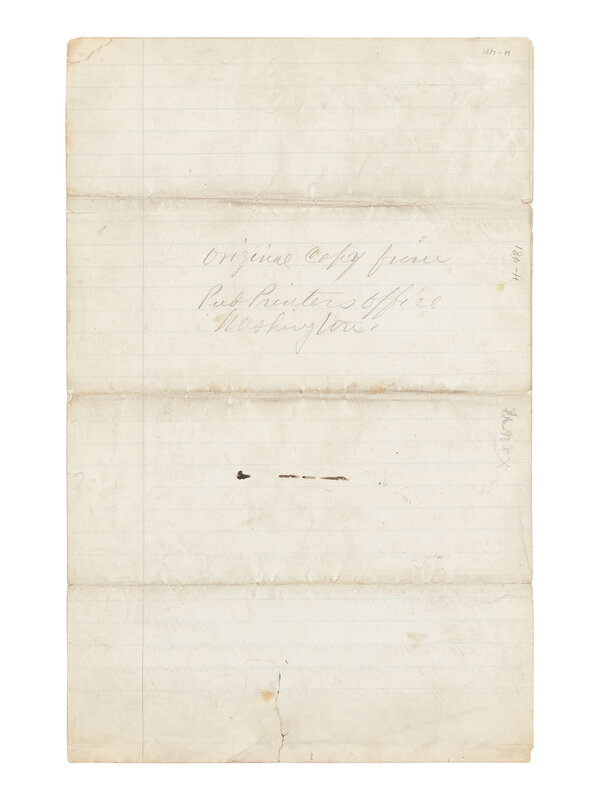 H-481
Original Copy from
Pub Printers office
Washington.
H-481